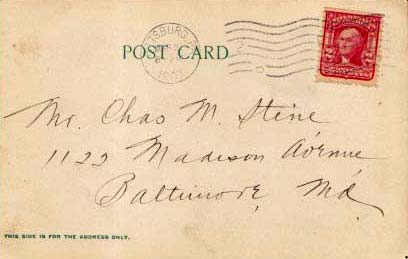 POST CARD
Mr. Chas M. Stine
1122 Madison Avenue
Baltimore, Md
THIS SIDE IS FOR THE ADDRESS ONLY.